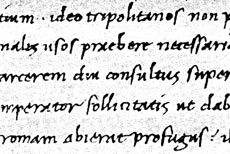 tium. ideo tripolitanos non p
nales usos praebere necessaria
arcerem diu consultus supe
mperator sollicitatis ut dab
romam abierat profugus. i